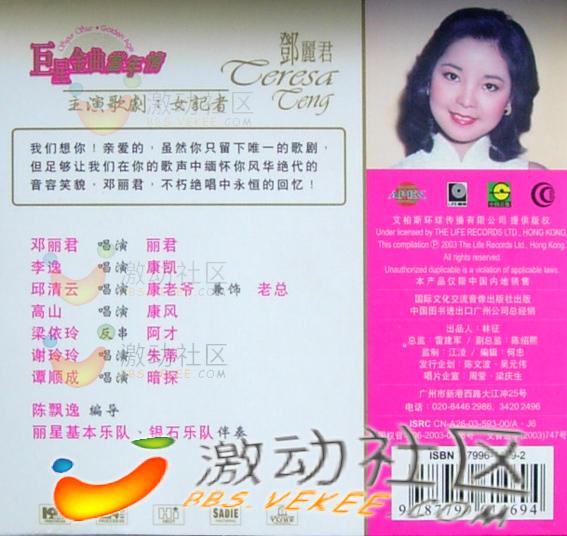 巨星金曲黄金情
Great Star • Golden Age
鄧麗君
Teresa
Teng
主演歌劇：女記者
我们想你！亲爱的，虽然你只留下唯一的歌剧，
但足够让我们在你的歌声中缅怀你风华绝代的
音容笑貌，邓丽君，不朽绝唱中永恒的回忆！
邓丽君 唱演 丽君
李逸 唱演 康凯
邱清云 唱演 康老爷 兼饰 老总
高山 唱演 康风
梁依玲 反串 阿才
谢玲玲 唱演
谭顺成 唱演 暗探
陈飘逸 编导
丽星基本乐队、银石乐队伴奏
文柏斯环球传播有限公司 提供版权
Under licensed by THE LIFE RECORDS LTD., HONG KONG.
This compilation Ⓟ 2003 The Life Records Ltd., Hong Kong.
All rights reserved.
Unauthorized duplicable is a violation of applicable laws.
本产品仅限中国内地销售
国际文化交流音像出版社出版
中国图书进出口广州公司总经销
出品人：林征
总监：雷建军 / 副总监：陈绍熙
监制：江凌 / 编辑：何忠
发行企划：陈文波、吴元伟
唱片企宣：周莹、梁庆生
广州市新港西路大江冲25号
电话：020-84462986, 34202496
ISRC CN-A26-03-593-00/A · J6
(2003)747号
ISBN
激动社区
BBS.VEKEE.COM
SADIE